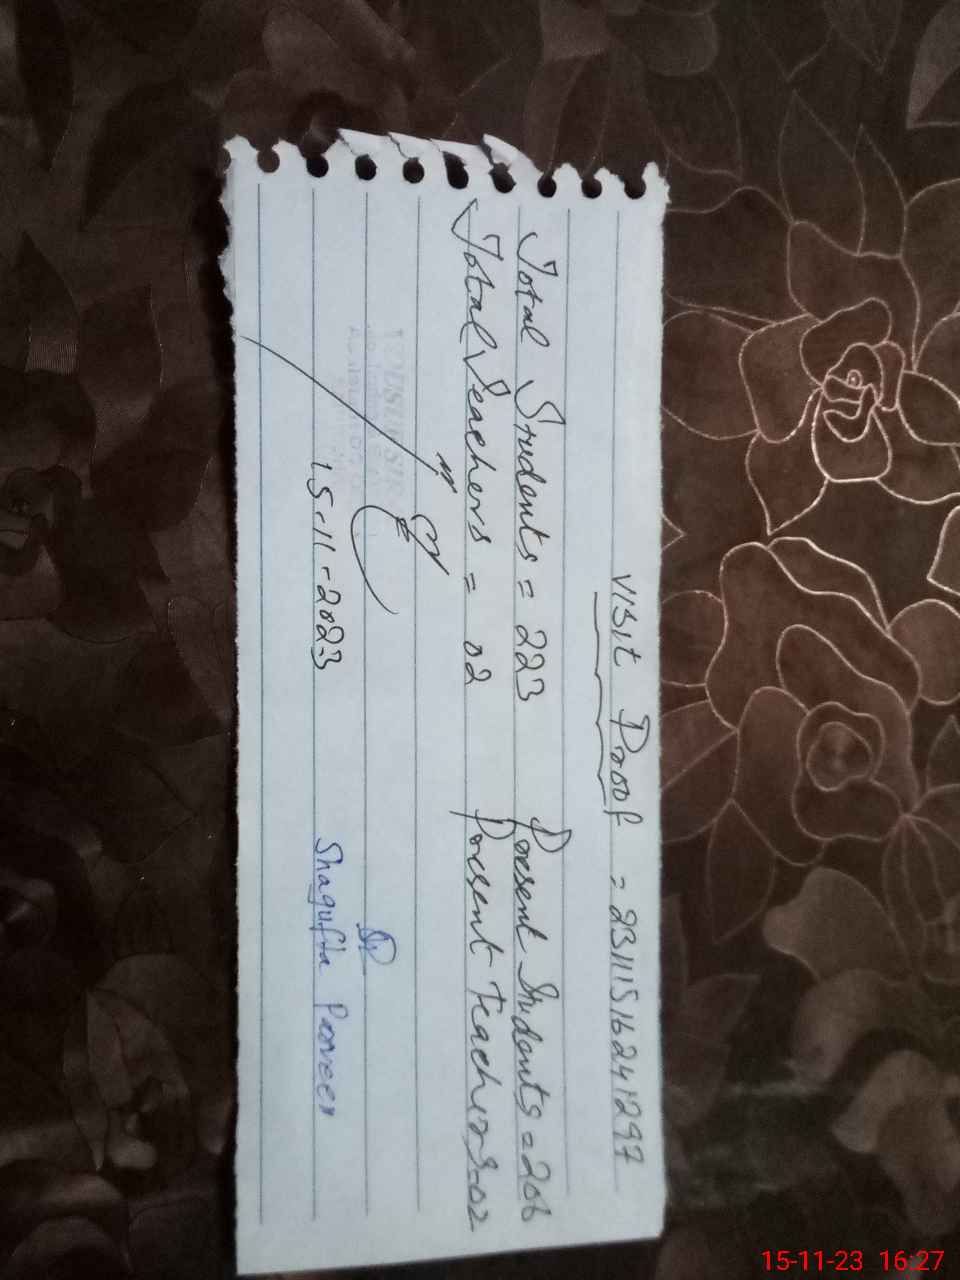 Visit Proof = 231115162441297
Total Students = 223 Present Students = 206
Total Teachers = 02 Present Teachers-02
15-11-2023
Shagufta Parveen
15-11-23 16:27